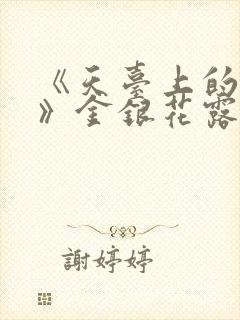 《天臺上的
》金銀花露
謝婷婷